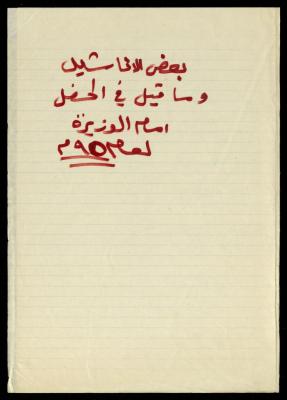 بعض الاناشيد
وما قيل في الحفل
امام الوزيرة
لعام ٩٥م